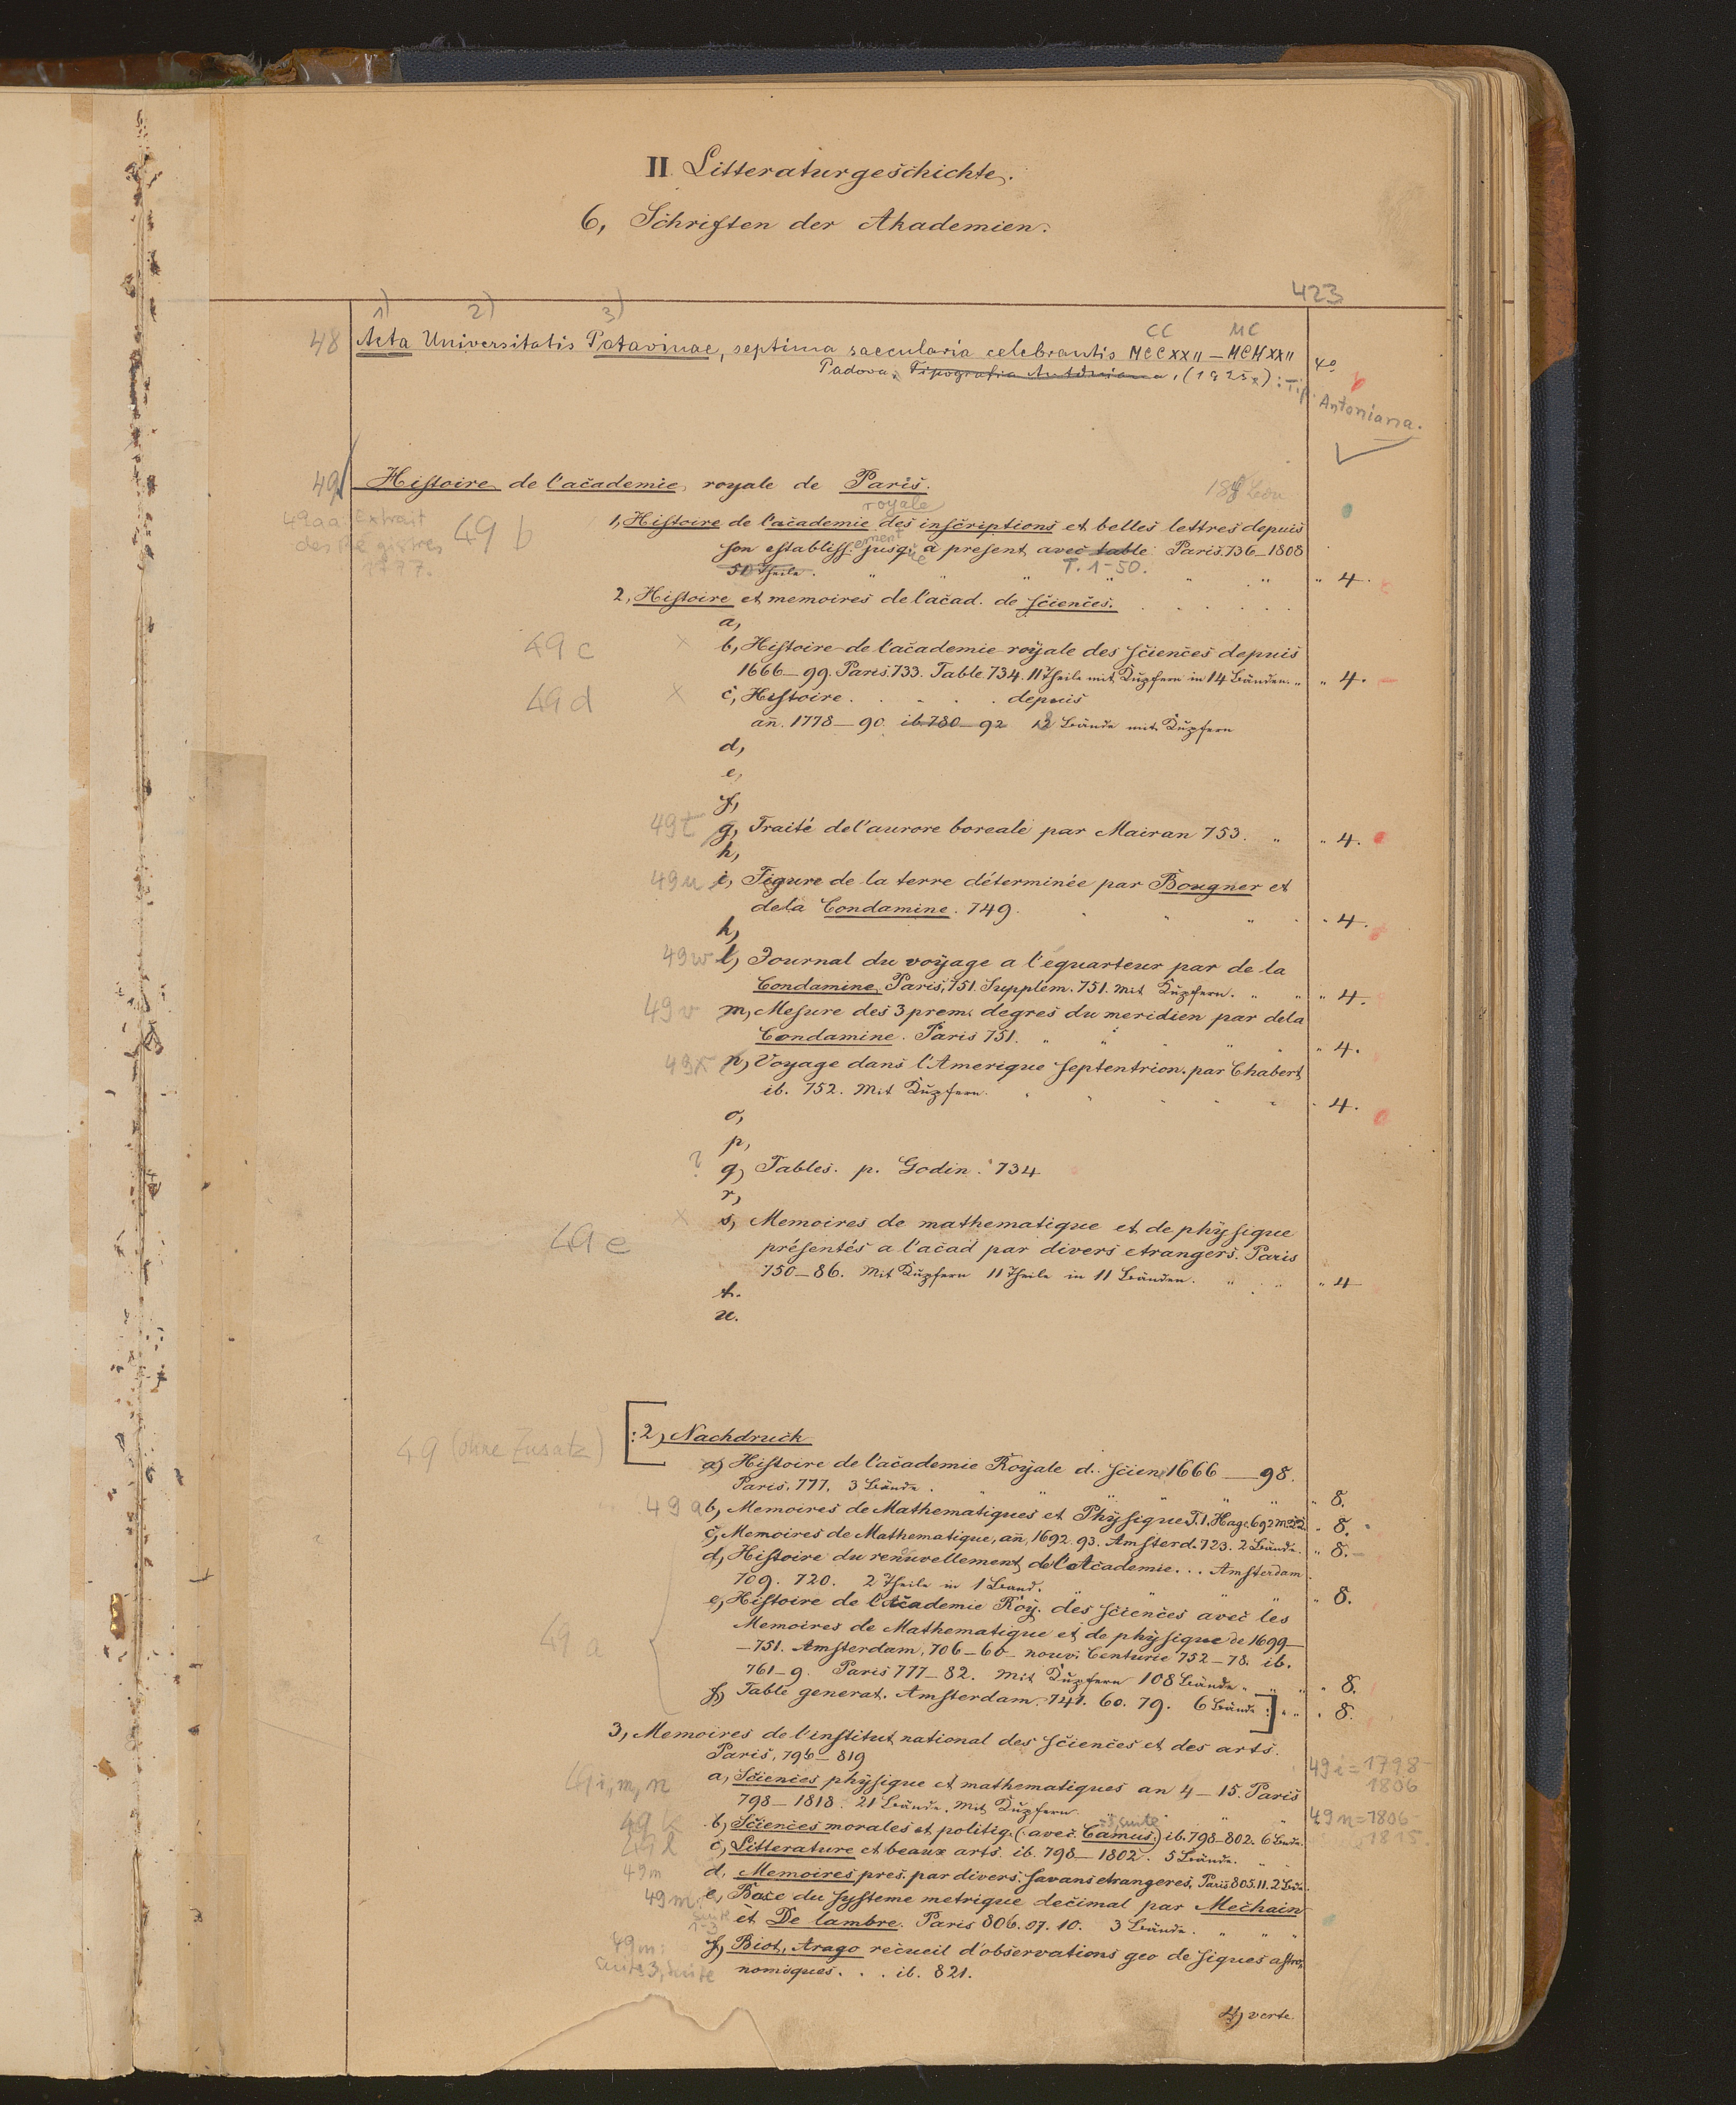 II. Litteraturgeschichte.
6, Schriften der Akademien.
423
1) 2) 3)
CC MC
48 Acta Universitatis Patavinae, septima saecularia celebrantis MCCXXII — MCMXXII 4°
Padova, Tipografia Antoniana, (1925) : Tip. Antoniana.
49 Histoire de l'academie royale de Paris.
royale
49aa: Extrait des Registres 1777.
49 b 1, Histoire de l'academie des inscriptions et belles lettres depuis
son establiss.ement jusq.ue à present avec table Paris. 736–1808
51 Theile. T. 1-50. " 4.
2, Histoire et memoires de l'acad. de sciences.
a,
49 c × b, Histoire de l'academie royale des sciences depuis
1666–99. Paris. 733. Table. 734. 11 Theile mit Kupfern in 14 Bänden. " " 4.
49 d × c, Histoire . . . . . depuis
añ. 1778–90. ib. 780–92 Bände mit Kupfern
d,
e,
f,
49t g, Traité de l'aurore boreale par Mairan 753. " " 4.
h,
49u i, Figure de la terre déterminée par Bougner et
dela Condamine. 749. " 4.
k,
49w l, Journal du voyage a l'equarteur par de la
Condamine, Paris, 751. Supplem. 751. Mit Kupfern. " " " 4.
49v m, Mesure des 3 prem. degres du meridien par dela
Condamine. Paris 751. " " " 4.
49x n, Voyage dans l'Amerique septentrion. par Chabert
ib. 752. Mit Kupfern. " 4.
o,
p,
? q, Tables. p. Godin. 734
r,
49 e × s, Memoires de mathematique et de physique
présentés a l'acad par divers etrangers. Paris
750–86. Mit Kupfern 11 Theile in 11 Bänden. " " " 4
t.
u.
49 (ohne Zusatz) [:2, Nachdruck
a) Histoire de l'academie Royale d.. scien. 1666 — 98.
Paris, 777. 3 Bände. " 8.
49 a b, Memoires de Mathematiques et Physique. T.1. Hage. 692 " 8.
c, Memoires de Mathematique, añ, 1692. 93. Amsterd. 723. 2 Bände. " 8.
d, Histoire du renouvellement de l'Academie... Amsterdam
709. 720. 2 Theile in 1 Band. " 8.
e, Histoire de l'Academie Roy. des sciences avec les
49 a Memoires de Mathematique et de physique de 1699–
–751. Amsterdam, 706–60 nouv. Centurie 752–78. ib.
761–9. Paris 777–82. Mit Kupfern 108 Bände. " " " 8.
f, Table generat. Amsterdam. 741. 60. 79. 6 Bände :] " " " 8.
3, Memoires de l'institut national des sciences et des arts.
Paris, 796–819
49 i = 1798–1806
49 i, m, n a, Sciences physique et mathematiques an 4–15. Paris
798–1818. 21 Bände. Mit Kupfern.
49 n = 1806–1815.
49 k b, Sciences morales et politiq. (avec. Camus) ib. 798–802. 6 Bände.
49 l c, Litterature et beaux arts. ib. 798–1802. 5 Bände.
49m d. Memoires pres. par divers. savans etrangeres, Paris 805.11. 2 Bde.
49 m: suite 1-3 e, Base du systeme metrique decimal par Mechain
et De lambre. Paris 806. 07. 10. 3 Bände.
49m: suite 3, suite f, Biot, Arago recueil d'observations geo de siques astro,
nomiques. . . ib. 821.
4) verte.